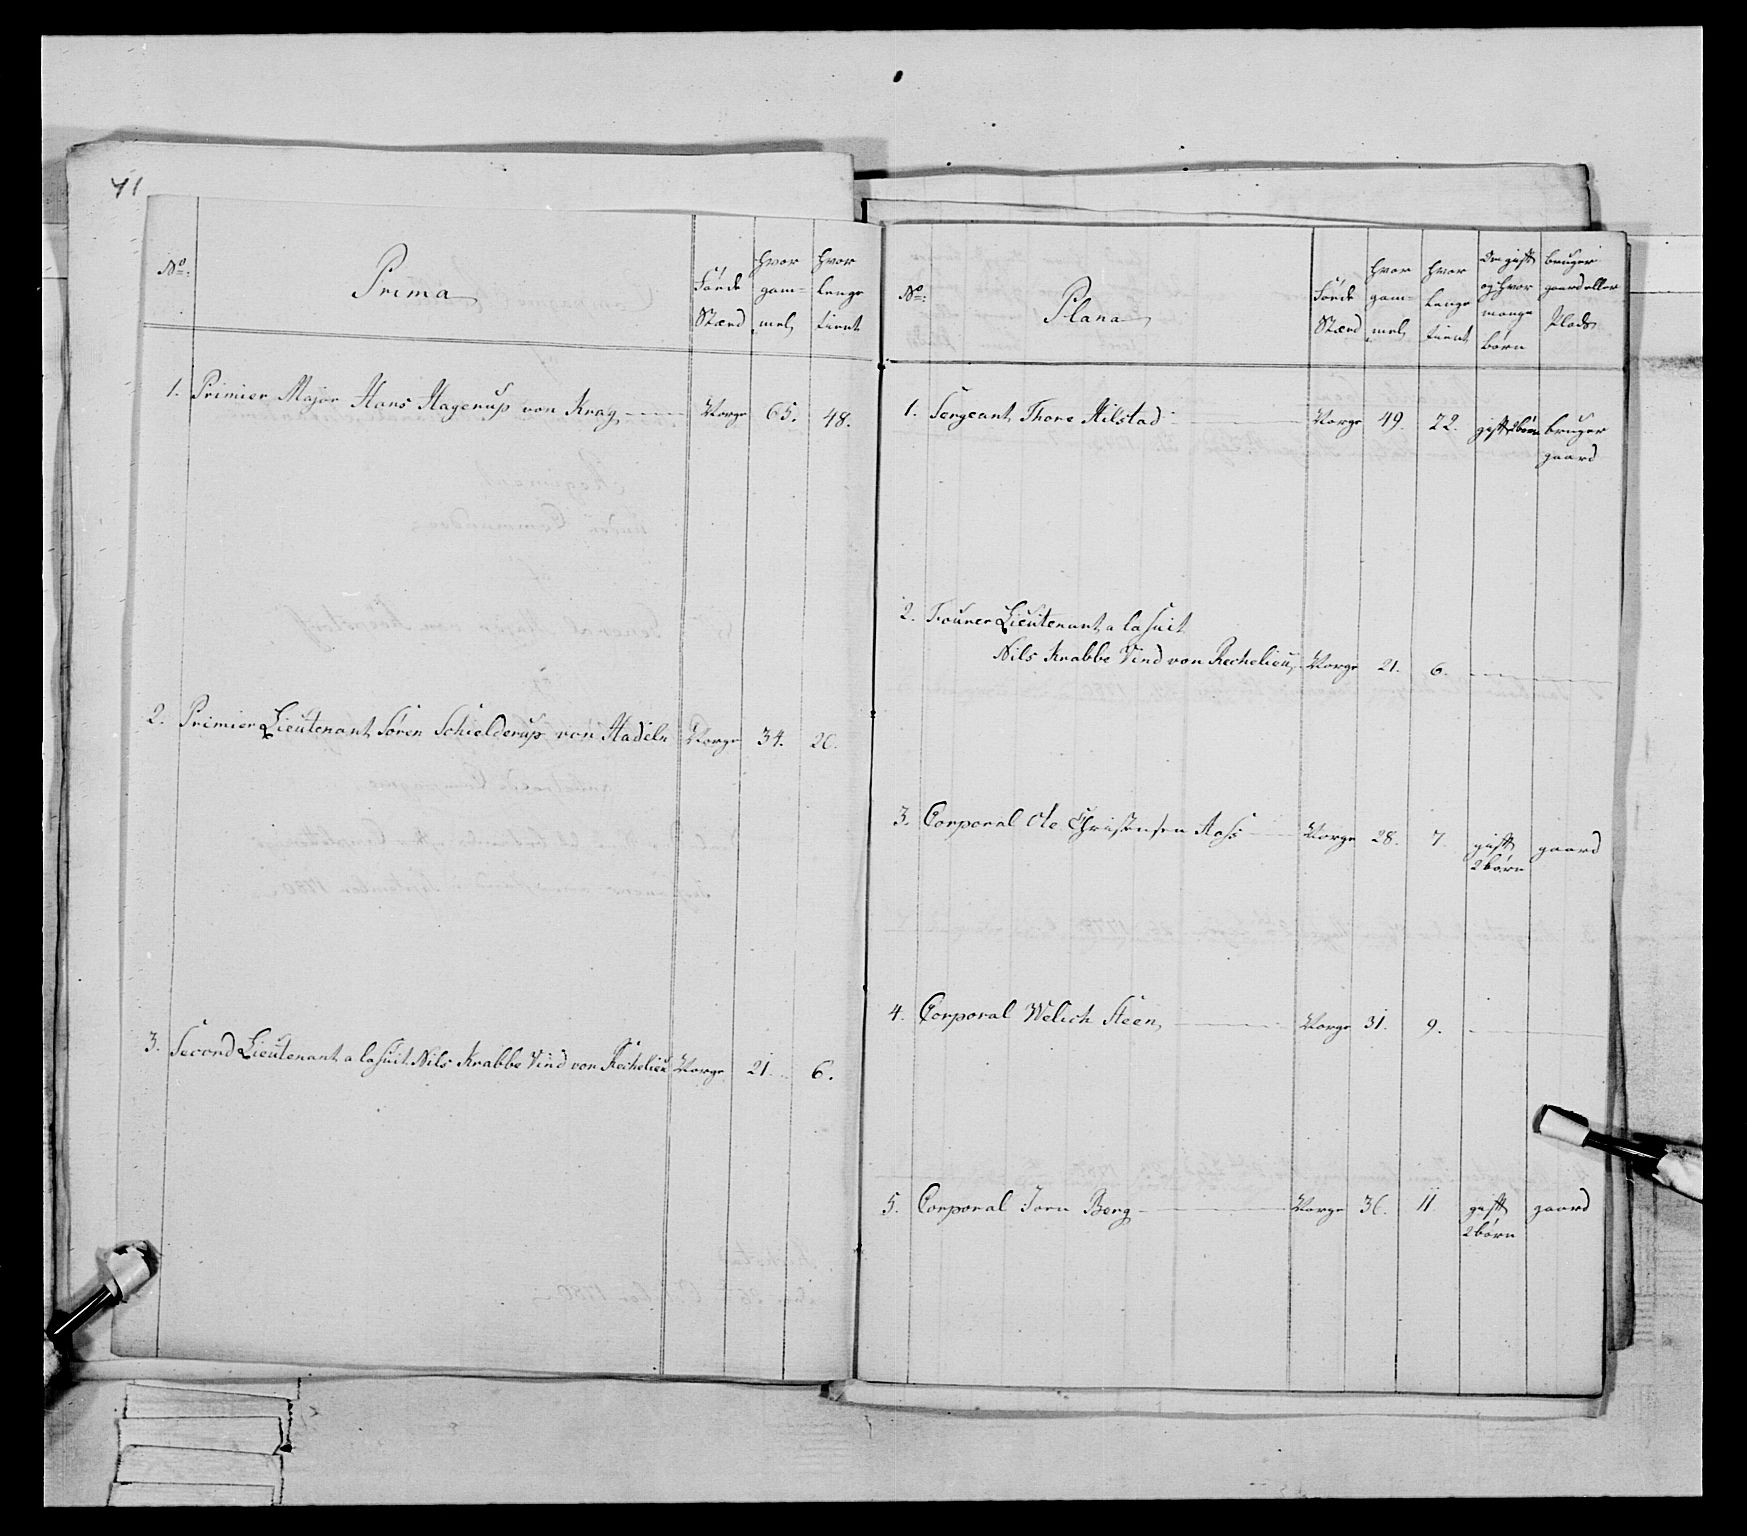 41
No: Prima Føede Sted hvor gam= mel hvor lenge tient
1. Primier Major Hans Hagerup von Krag Norge 65. 48.
2. Primier Lieutenant Søren Schielderup von Hadeln Norge 34. 20.
3. Second Lieutenant a la Suit Nils Krabbe Vind von Rechelieu Norge 21. 6.
No: Plana Føede Sted hvor gam= mel hvor lenge tient Om gift og hvor mange børn bruger gaard eller Plads
1. Sergeant Thore Hilstad Norge 49. 22. gift 2 børn bruger
gaard
2. Fourer Lieutenant a la Suit
Nils Krabbe Vind von Rechelieu Norge 21. 6.
3. Corporal Ole Christensen Norge 28. 7. gift gaard
2 børn
4. Corporal Welich Steen Norge 31. 9.
5. Corporal Jørn Berg Norge 36. 11 gift gaard
2 børn